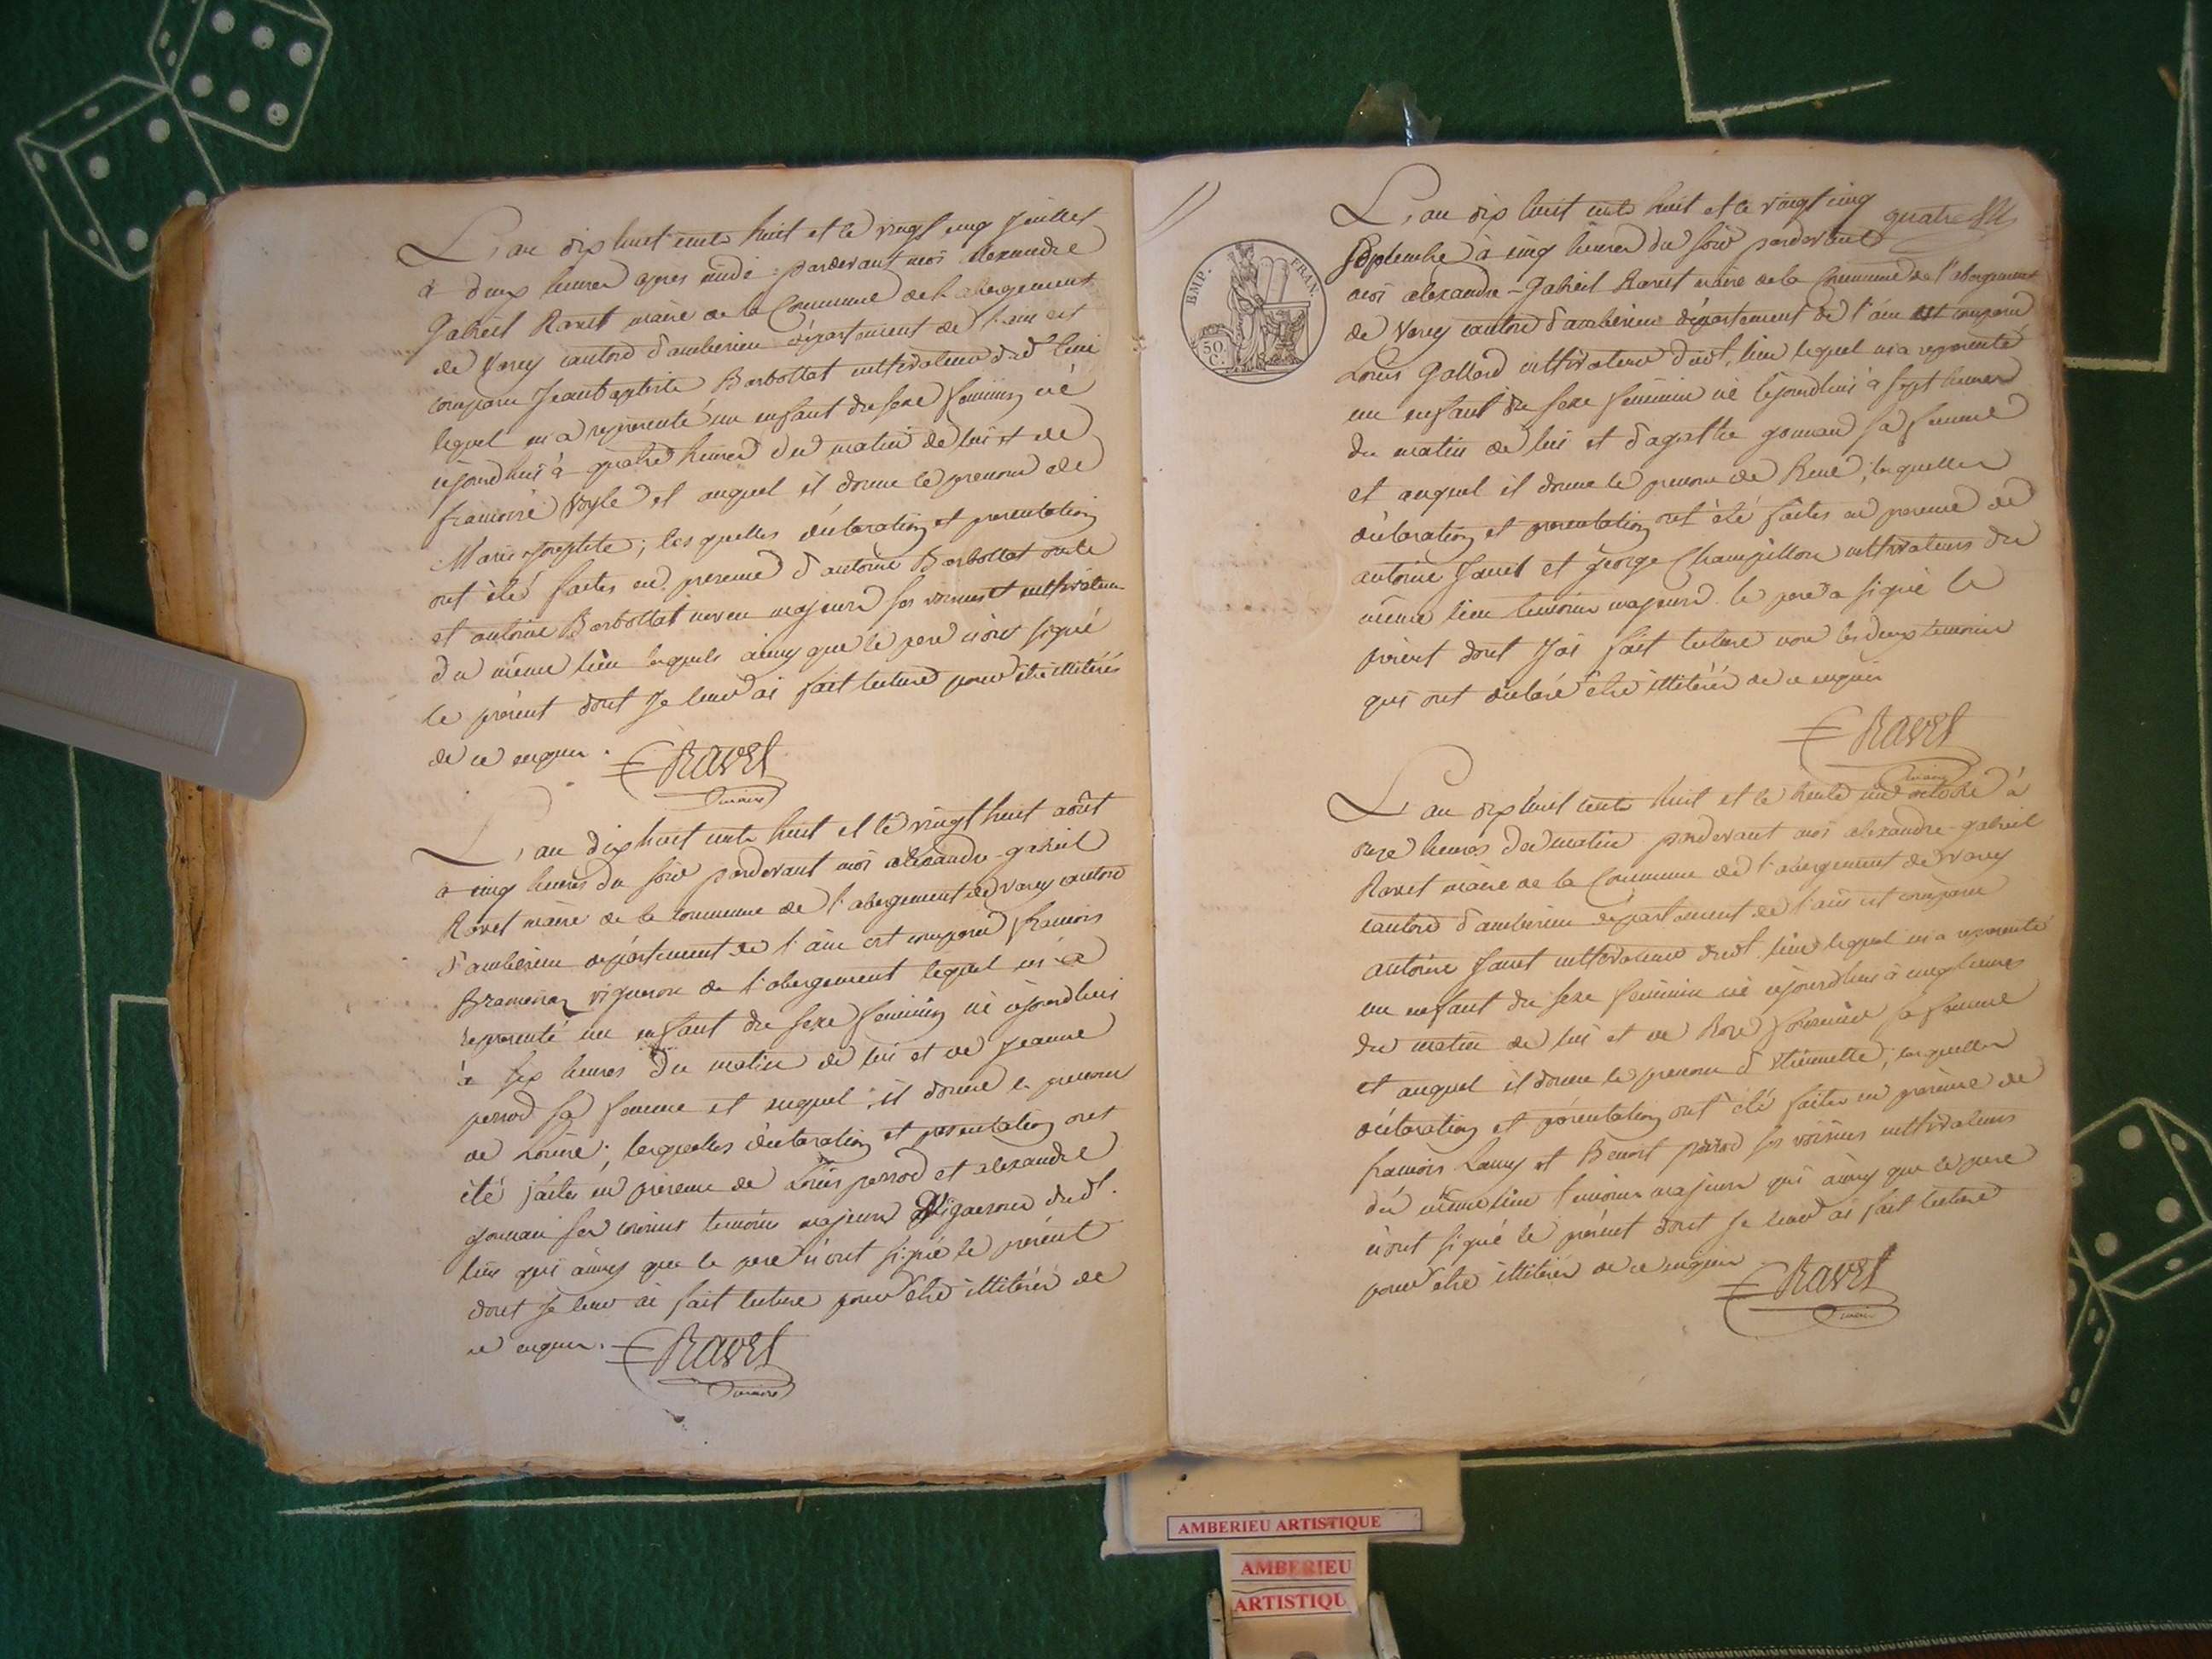 L'an dix huit cents huit et le vingt cinq Juillet
à deux heures apres midi pardevant moi alexandre
Gabriel Ravet maire de la Commune de l'abergement
de Varey canton d'amberieu département de l'ain est
comparu Jean baptiste Barbollat cultivateur dud. lieu
lequel m'a representé un enfant du sexe feminin né
cejourdhui à quatre heures du matin de lui et de
francoise et auquel il donne le prenom de
Marie josephte; lesquelles déclaration et presentation
ont été faites en presence d'antoine Barbollat oncle
et antoine Barbollat neveu majeurs ses voisins et cultivateurs
du même lieu lesquels ainsy que le pere n'ont signé
le présent dont Je leur ai fait lecture pour être illitérés
de ce enquis.
Ravet
maire
L'an dix huit cents huit et le vingt huit août
à cinq heures du soir pardevant moi alexandre-gabriel
Ravet maire de la commune de l'abergement de varey canton
d'amberieu département de l'ain est comparu francois
vigneron de l'abergement lequel m'a
representé un enfant du sexe feminin né cejourdhui
à six heures du matin de lui et de Jeanne
perrod sa femme et auquel il donne le prenom
de Louise; lesquelles déclaration et presentation ont
été faites en presence de Louis perrod et alexandre
gonnan ses voisins temoins majeurs Vignerons dud.
lieu qui ainsy que le pere n'ont signé le présent
dont Je leur ai fait lecture pour être illitérés de
ce enquis.
Ravet
maire
quatre
BMP. FRAN.
50 C.
L'an dix huit cents huit et le vingt cinq
septembre à cinq heures du soir pardevant
moi alexandre-Gabriel Ravet maire de la Commune de l'abergement
de Varey canton d'amberieu département de l'ain est comparu
Louis Gallard cultivateur dud. lieu lequel m'a representé
un enfant du sexe feminin né cejourdhui à sept heures
du matin de lui et d'agathe gonnan sa femme
et auquel il donne le prenom de René; lesquelles
déclaration et presentation ont été faites en presence de
antoine Janet et george Champillon cultivateurs du
même lieu temoins majeurs le pere a signé le
présent dont J'ai fait lecture non les deux temoins
qui ont déclaré être illitérés de ce enquis
Ravet
maire
L'an dix huit cents huit et le trente un octobre à
onze heures du matin pardevant moi alexandre-gabriel
Ravet maire de la Commune de l'abergement de Varey
canton d'amberieu département de l'ain est comparu
antoine Janet cultivateur dud. lieu lequel m'a representé
un enfant du sexe feminin né cejourdhui à cinq heures
du matin de lui et de Roze sa femme
et auquel il donne le prenom d'Etiennette; lesquelles
déclaration et présentation ont été faites en presence de
francois Lamy et Benoit perrod ses voisins cultivateurs
du même lieu temoins majeurs qui ainsy que le pere
n'ont signé le présent dont Je leur ai fait lecture
pour être illitérés de ce enquis
Ravet
maire
AMBERIEU ARTISTIQUE
AMBERIEU
ARTISTIQU